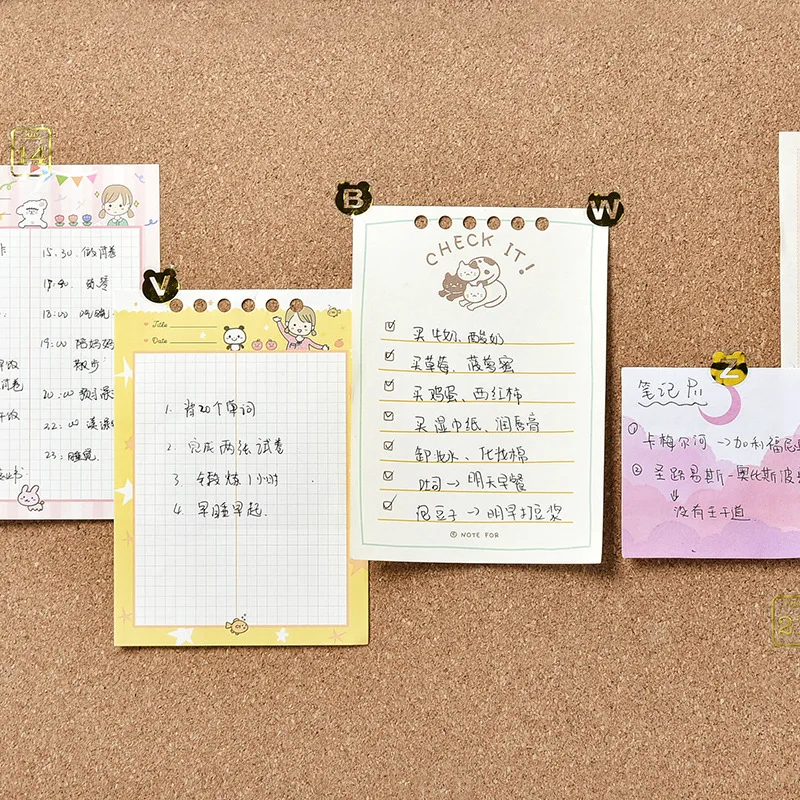 14
15:30 做简卷
18:00 吃晚
19:00 陪妈妈
散步
20:00
22:00
23:
V
Title
Date
1. 背20个单词
2. 完成两张试卷
3. 锻炼1小时
4. 早睡早起.
B
W
CHECK IT!
买牛奶、酸奶
买草莓、菠萝蜜
买鸡蛋、西红柿
买湿巾纸、润唇膏
卸妆水、化妆棉
吐司→明天早餐
泡豆子→明早打豆浆
NOTE FOR
Z
笔记 P11
① 卡梅尔河→加利福尼亚
② 圣路易斯-奥比斯波
没有王子道